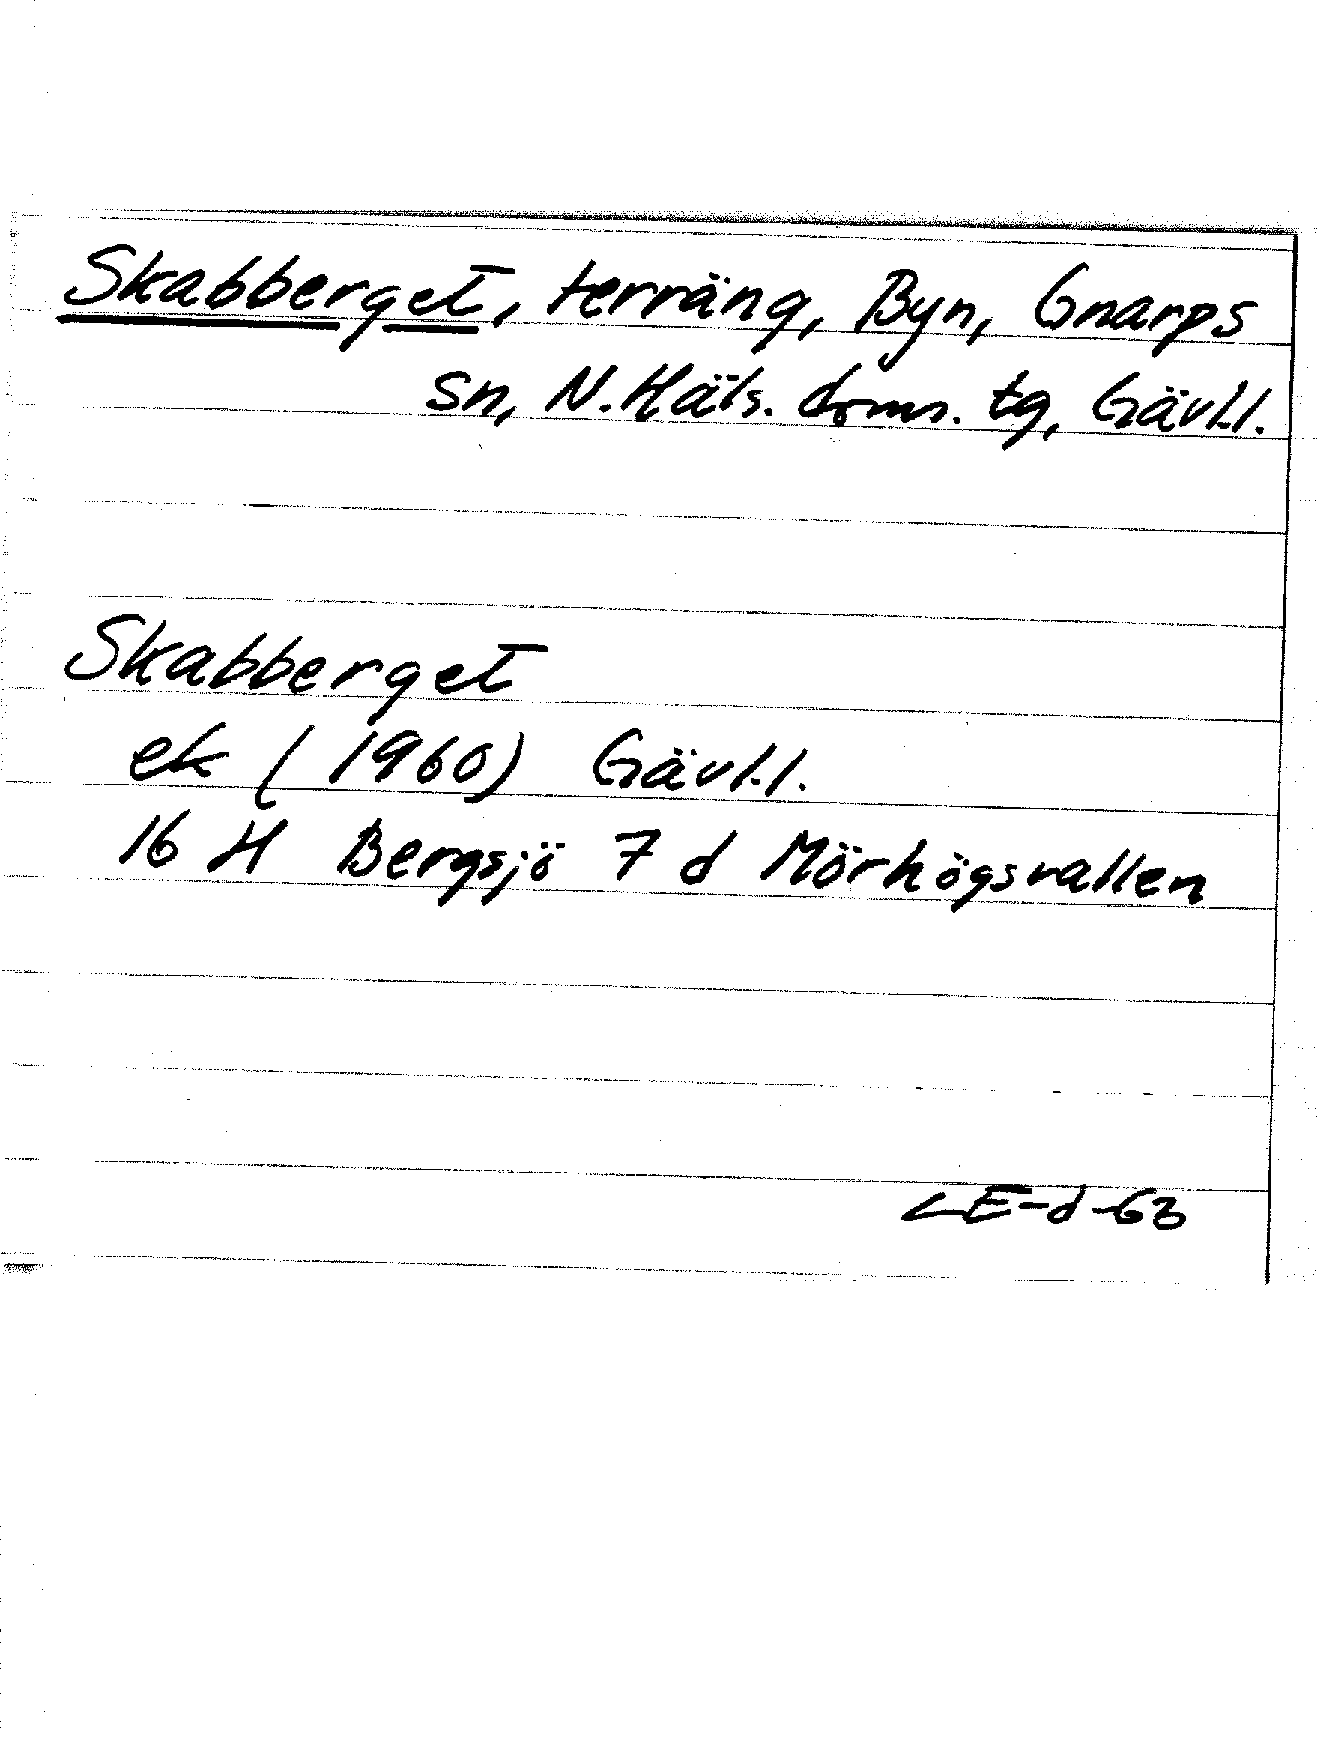 Skabberget, terräng, Byn, Gnarps
sn, N. Häls. doms. tg, Gävl.l.
Skabberget
ek (1960) Gävl.l.
16 H Bergsjö 7 d Mörhögsvallen
LE-d-63